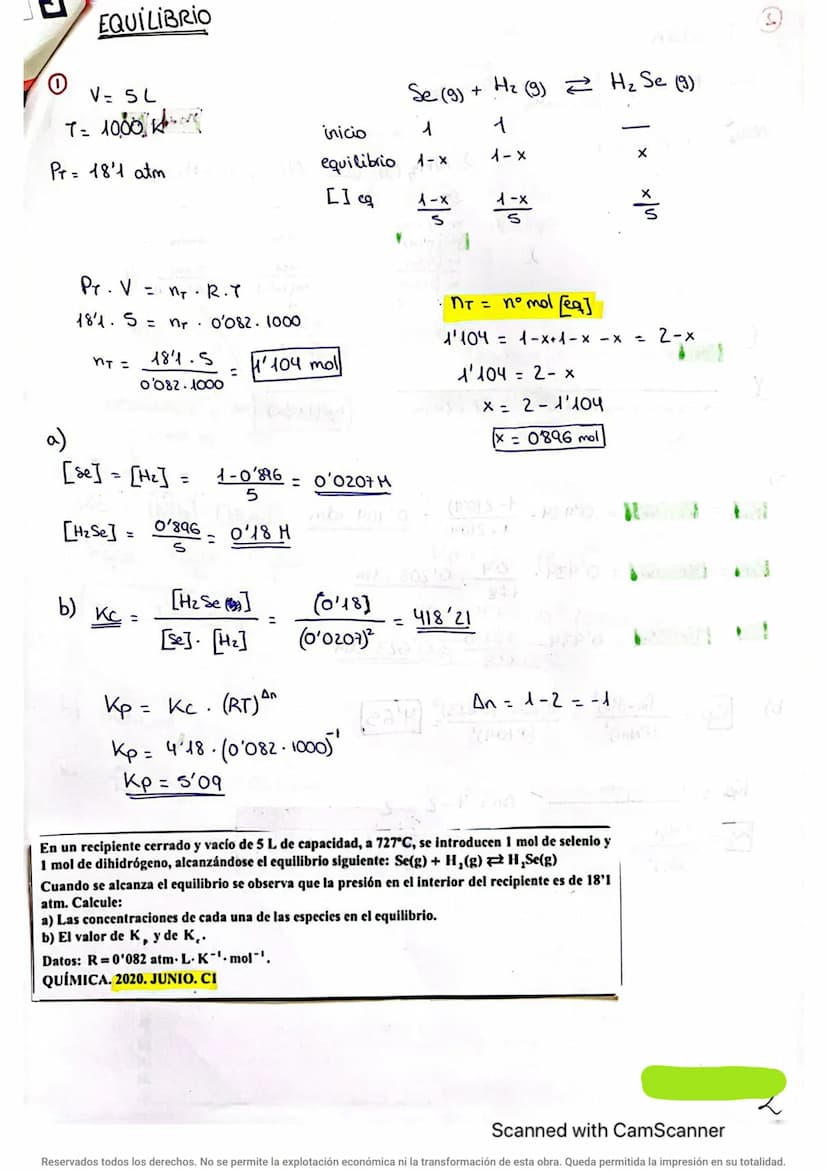 EQUILIBRIO
①
V = 5 L
T = 1000 K
PT = 18'1 atm
Se (g) + H2 (g) ⇄ H2 Se (g)
inicio 1 1 —
equilibrio 1-x 1-x x
[ ] eq (1-x)/5 (1-x)/5 x/5
PT . V = nT . R.T
18'1 . 5 = nT . 0'082 . 1000
nT = (18'1 . 5)/(0'082 . 1000) = 1'104 mol
nT = nº mol [eq]
1'104 = 1-x+1-x -x = 2-x
1'104 = 2-x
x = 2 - 1'104
x = 0'896 mol
a)
[Se] = [H2] = (1-0'896)/5 = 0'0207 M
[H2Se] = 0'896/5 = 0'18 M
b) Kc = [H2Se (g)]/([Se] . [H2]) = (0'18)/(0'0207)² = 418'21
Kp = Kc . (RT)^Δn Δn = 1-2 = -1
Kp = 4'18 . (0'082 . 1000)^-1
Kp = 5'09
En un recipiente cerrado y vacío de 5 L de capacidad, a 727ºC, se introducen 1 mol de selenio y
1 mol de dihidrógeno, alcanzándose el equilibrio siguiente: Se(g) + H2(g) ⇄ H2Se(g)
Cuando se alcanza el equilibrio se observa que la presión en el interior del recipiente es de 18'1
atm. Calcule:
a) Las concentraciones de cada una de las especies en el equilibrio.
b) El valor de Kp y de Kc.
Datos: R = 0'082 atm· L· K⁻¹· mol⁻¹.
QUÍMICA. 2020. JUNIO. C1
Scanned with CamScanner
Reservados todos los derechos. No se permite la explotación económica ni la transformación de esta obra. Queda permitida la impresión en su totalidad.